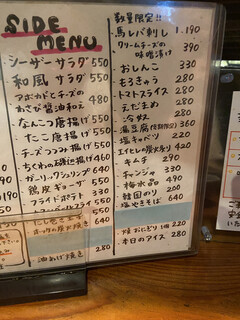 SIDE
MENU
シーザーサラダ 550
和風サラダ 550
アボカドとチーズの
わさび醤油和え 480
なんこつ唐揚げ 550
たこ唐揚げ 550
チーズつつみ揚げ 550
ちくわの磯辺揚げ 460
ガーリックシュリンプ 640
鶏皮ギョーザ 550
フライドポテト 330
550
油あげ焼き 280
数量限定!!
馬レバ刺し 1,190
クリームチーズの
味噌漬け 390
おしんこ 330
もろきゅう 280
トマトスライス 280
えだまめ 280
冷奴 280
湯豆腐
塩キャベツ 220
エイヒレの炭火炙り 420
キムチ 290
チャンジャ 390
梅水晶 490
韓国のり 200
塩やきそば 640
焼おにぎり 1個 220
本日のアイス 280